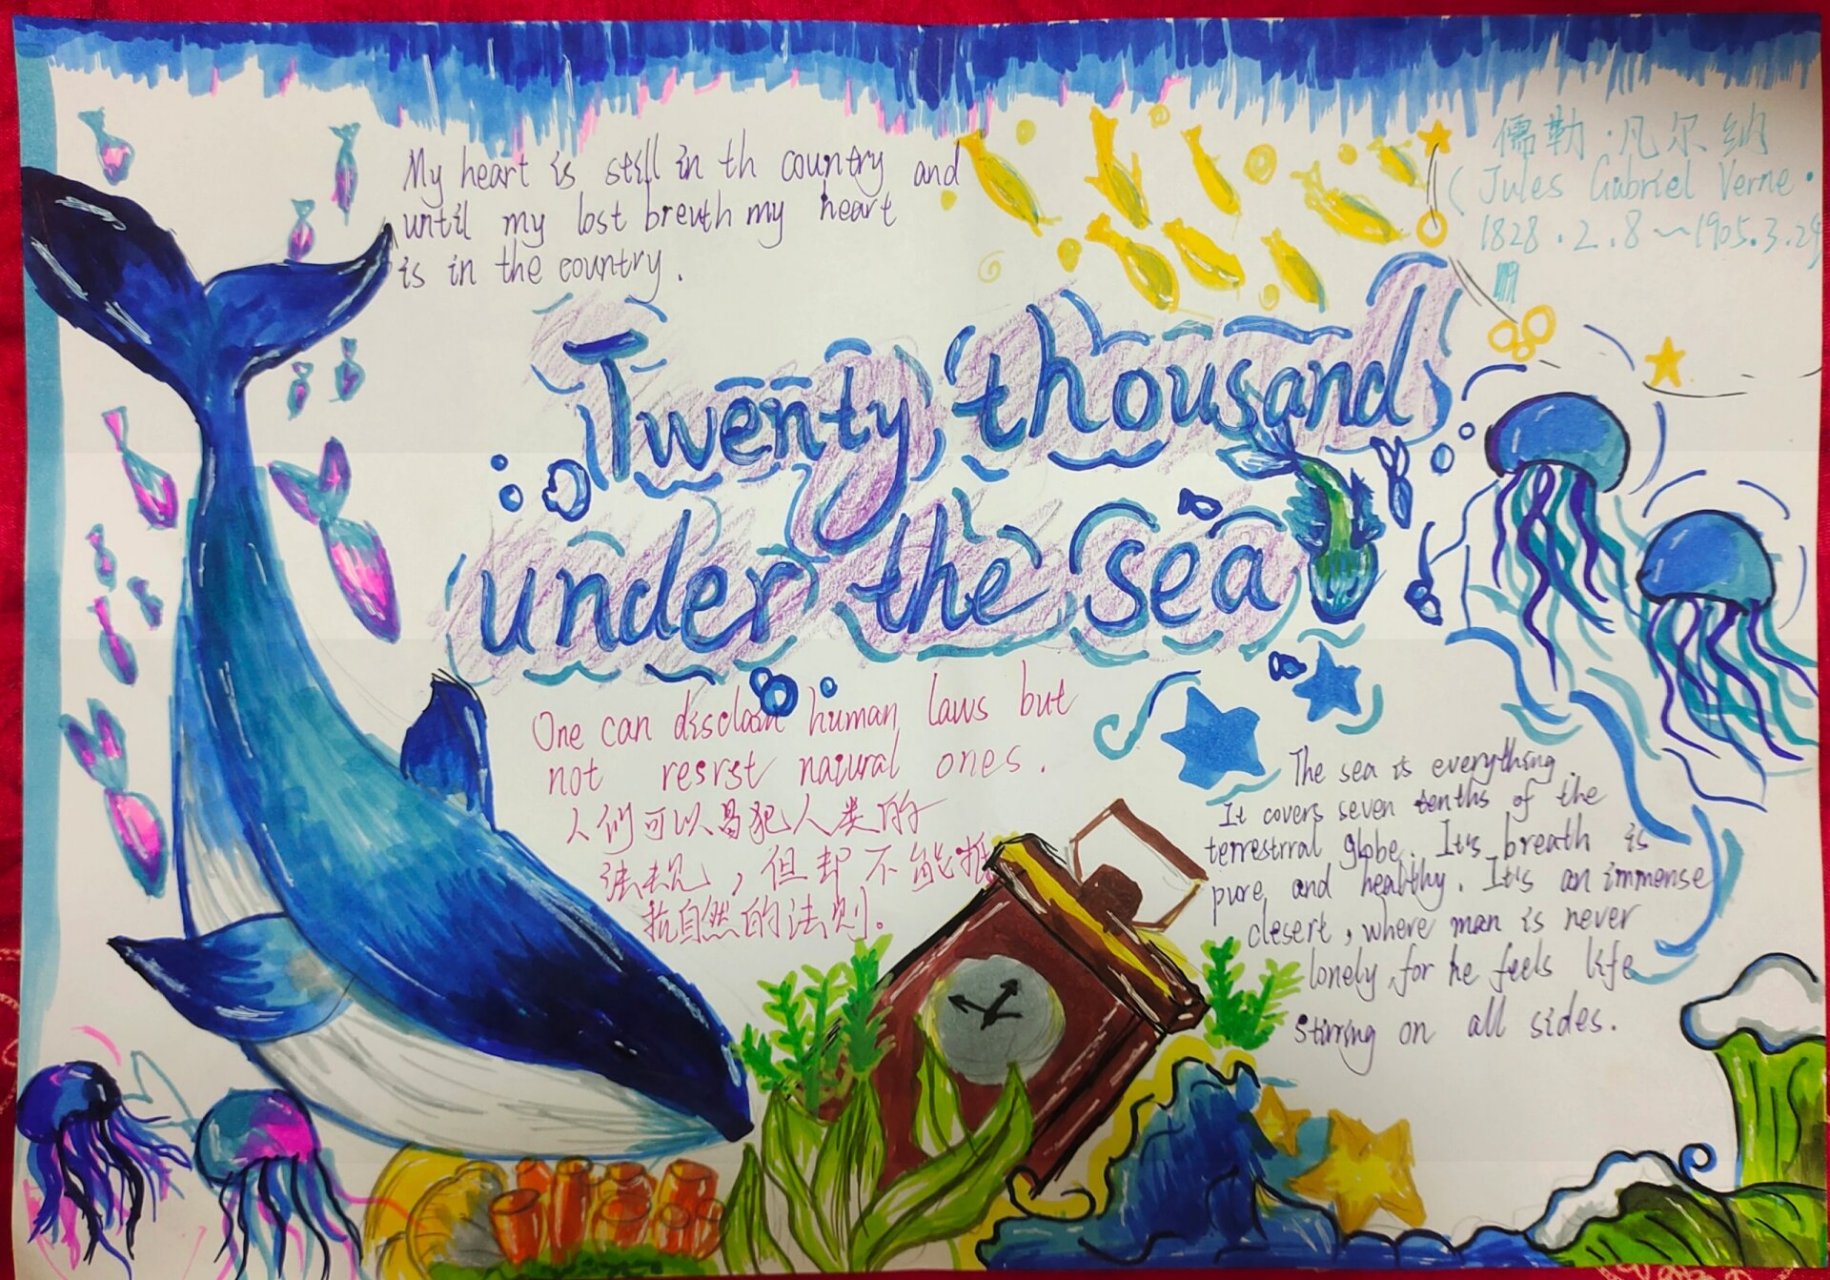 My heart is still in th country and
until my lost breath my heart
is in the country.
儒勒·凡尔纳
(Jules Gabriel Verne.
1828.2.8~1905.3.29
Twenty thousand
under the sea
One can disclaim human laws but
not resrst natural ones.
人们可以冒犯人类的
法规,但却不能抵
抗自然的法则。
The sea is everything.
It covers seven tenths of the
terrestrral globe. It's breath is
pure and healthy. It's an immense
desert, where man is never
lonely, for he feels life
stirring on all sides.